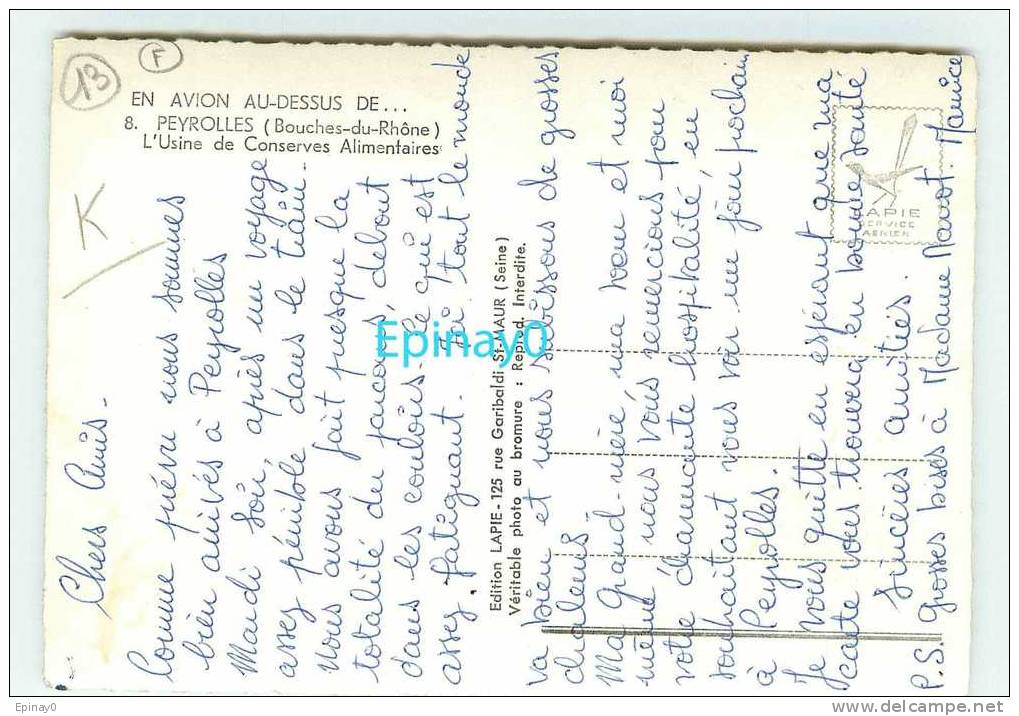 13
F
EN AVION AU-DESSUS DE...
8. PEYROLLES (Bouches-du-Rhône)
L'Usine de Conserves Alimentaires
K
Chers Amis.
Comme prévu nous sommes
bien arrivés à Peyrolles
Mardi soir, après un voyage
assez pénible dans le train.
Nous avons fait presque la
totalité du parcours, debout
dans les couloirs. Ce qui est
assez fatiguant. Ici tout le monde
Edition LAPIE - 125 rue Garibaldi St-MAUR (Seine)
Véritable photo au bromure : Reprod. Interdite.
va bien et nous subissons de grosses
chaleurs
Ma grand-mère, ma sœur et moi
même nous vous remercions pour
votre charmante hospitalité, en
souhaitant vous voir un jour prochain
à Peyrolles.
Je vous quitte en espérant que ma
carte vous trouvera en bonne santé
Sincères amitiés.
P.S. Grosses bises à Madame Maurice
LAPIE
SERVICE
AERIEN
Epinay0
Epinay0
www.delcampe.net